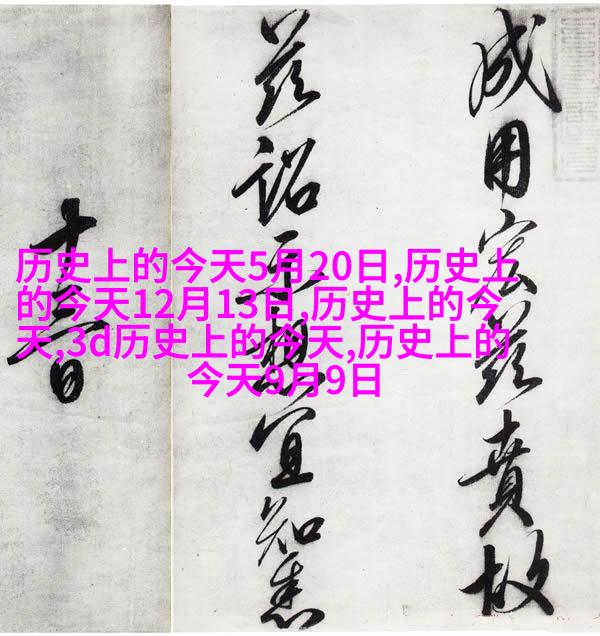 历史上的今天5月20日,历史上
的今天12月13日,历史上的今
天,3d历史上的今天,历史上的
今天9月9日
成用宏茲賁故
茲詔示想宜知悉